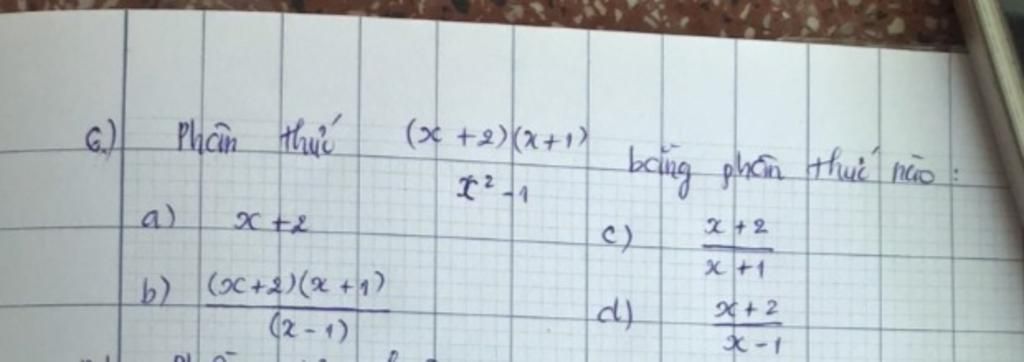 6.) Phân thức (x+2)(x+1) / x² - 1 bằng phân thức nào:
a) x+2
c) x+2 / x+1
b) (x+2)(x+1) / (x-1)
d) x+2 / x-1